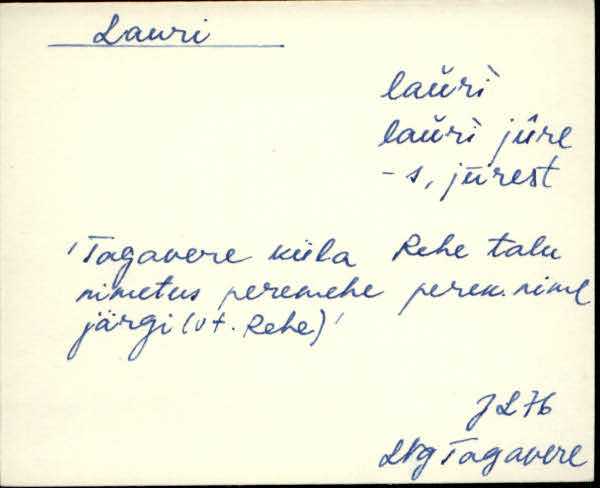 Lauri
laŭri̇̀
laŭri̇̀ jûre
-s, jūrest
'Tagavere küla Rehe talu
nimetus peremehe perek. nime
järgi (vt. Rehe)'
JL76
LNg Tagavere